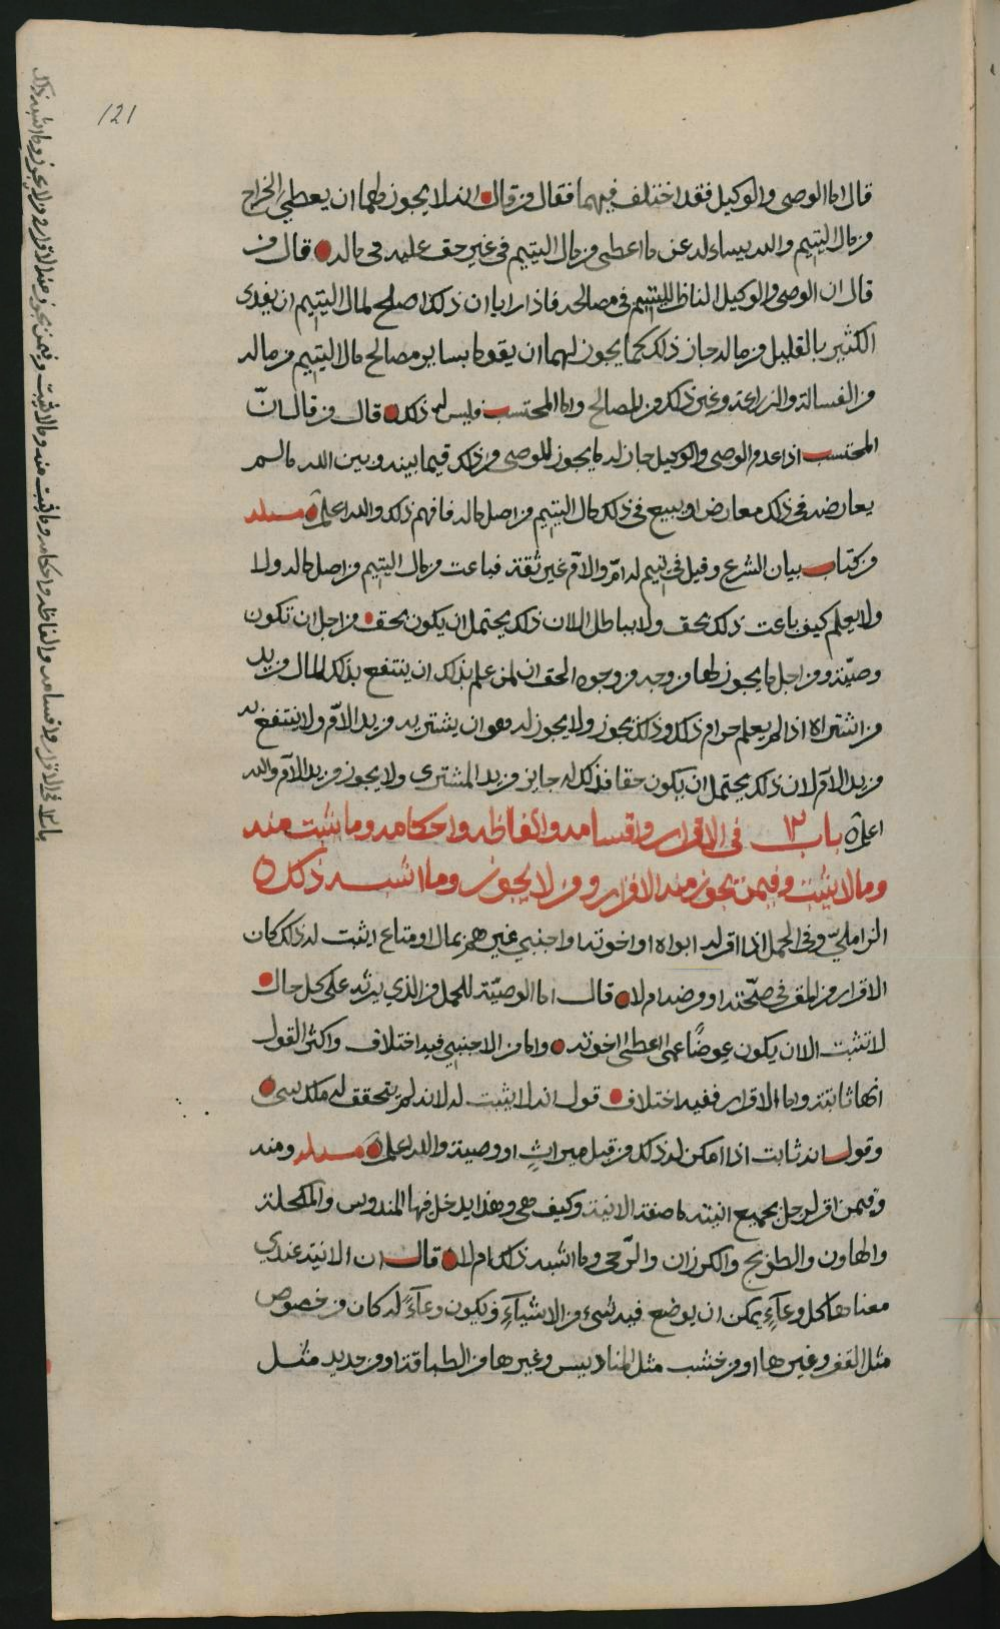 121
قال اما الوصي والوكيل فقد اختلف فيهما فقال من قال انه لا يجوز لهما ان يعطي الخراج
من مال اليتيم والله يسائله عن ما اعطى من مال اليتيم في غير حق عليه في ماله قال من
قال ان الوصي والوكيل الناظر لليتيم في مصالحه فاذا رايا ان ذلك اصلح لمال اليتيم ان يفدى
الكثير بالقليل من ماله جاز ذلك كما يجوز لهما ان يقوما بساير مصالح مال اليتيم من ماله
من الفسالة والزراعة وغير ذلك من المصالح واما المحتسب فليس له ذلك قال من قال انّ
المحتسب اذا عدم الوصي والوكيل جاز له ما يجوز للوصي من ذلك فيما بينه وبين الله ما لم
يعارضه في ذلك معارض او يبيع في ذلك مال اليتيم من اصل ماله فافهم ذلك والله اعلم مسئلة
من كتاب بيان الشرع وقيل في يتيم له امّ والامّ غير ثقة فباعت من مال اليتيم من اصل ماله ولا
ولا يعلم كيف باعت ذلك بحق ولا بباطل الا ان ذلك يحتمل ان يكون بحق من اجل ان تكون
وصيّة ومن اجل ما يجوز لها من وجه من وجوه الحق ان لمن علم بذلك ان ينتفع بذلك المال من يد
من اشتراه اذا لم يعلم حرام ذلك وذلك يجوز ولا يجوز له هو ان يشتريه من يد الامّ ولا ينتفع به
من يد الامّ لان ذلك يحتمل ان يكون حقا فذلك له جايز من يد المشتري ولا يجوز من يد الامّ والله
اعلم باب ١٣ في الاقرار واقسامه والفاظه واحكامه وما يثبت منه
وما لا يثبت وفيمن يجوز منه الاقرار ومن لا يجوز وما اشبه ذلك
الزامليّ وفي الحمل اذا اقر له ابواه او اخوته او اجنبي غيرهم بمال او متاع ايثبت له ذلك كان
الاقرار من المقر في صحّته او مرضه ام لا قال اما الوصيّة للحمل من الذي يرثه على كل حال
لا تثبت الا ان يكون عِوضًا عمى اعطى اخوته واما من الاجنبي فيه اختلاف واكثر القول
انها ثابتة واما الاقرار ففيه اختلاف قول انه لا يثبت له لانه لم يتحقق له ملك شي
وقول انه ثابت اذا امكن له ذلك من قبل ميراثٍ او وصية والله اعلم مسئلة ومنه
وفيمن اقر لرجل بجميع انيته ما صفة الانية وكيف هي وهذا يدخل فيها المندوس والمكحلة
والهاون والطوبج والكرزان والرّحى وما اشبه ذلك ام لا قال ان الانية عندي
معناها كل وعآءٍ يمكن ان يوضع فيه شيء من الاشيآءِ ويكون وعآءً له كان من خصوص
مثل القفر وغيرها او من خشب مثل المناديس وغيرها من الطباقة او من حديد مثل
باب ١٣ في الاقرار واقسامه والفاظه واحكامه وما يثبت منه وما لا يثبت وفيمن يجوز منه الاقرار ومن لا يجوز وما اشبه ذلك